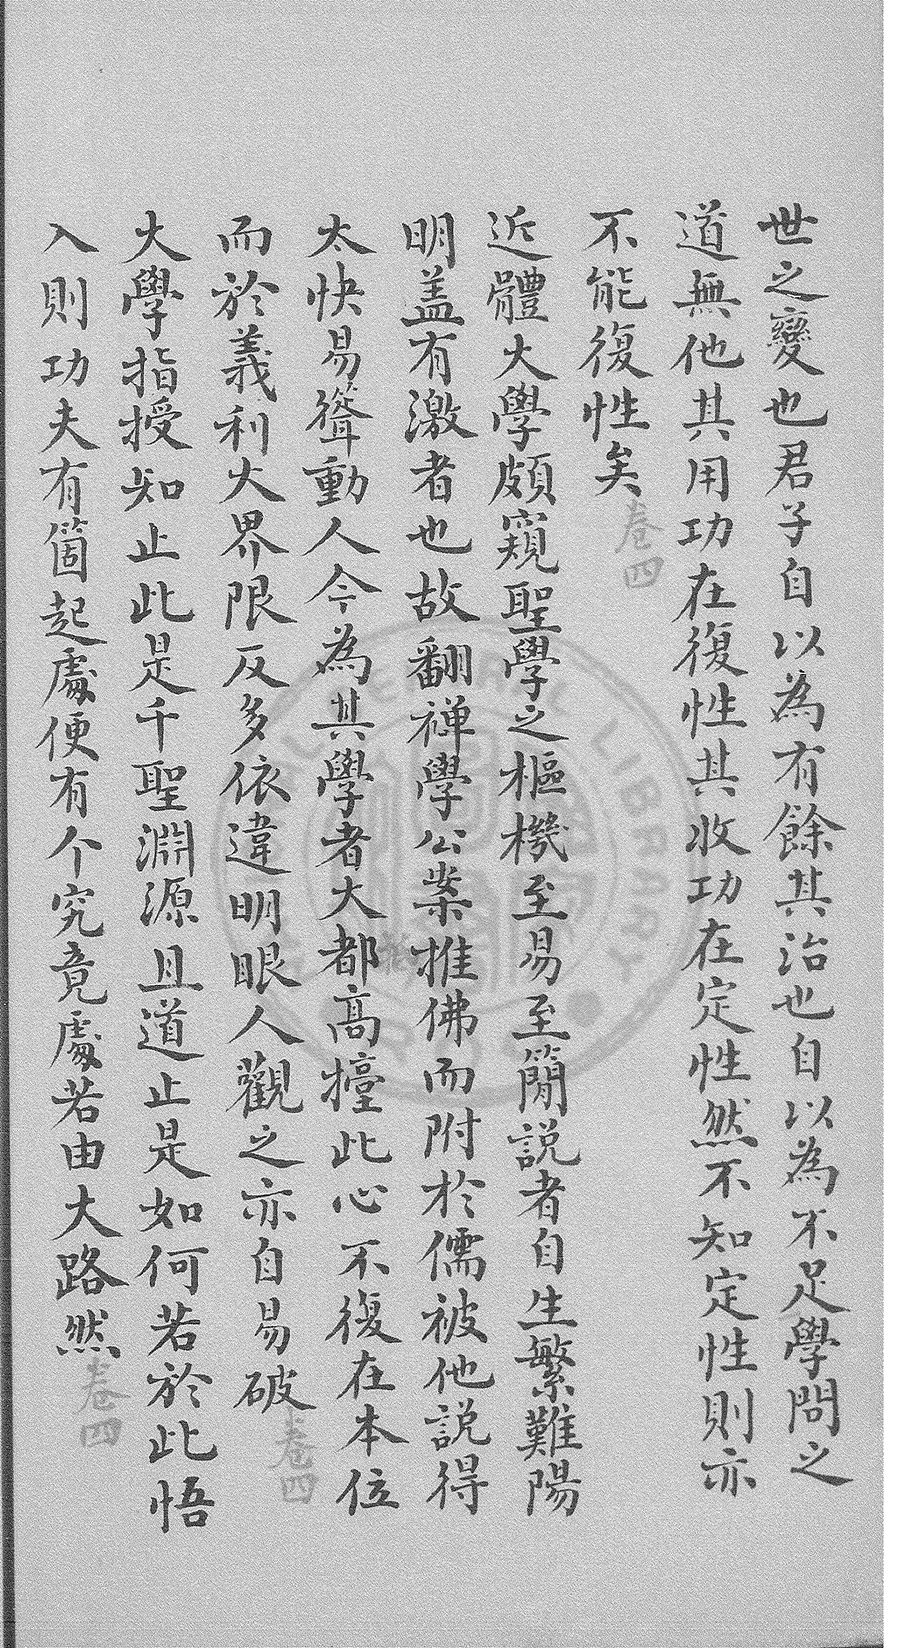 世之變也君子自以為有餘其治也自以為不足學問之
道無他其用功在復性其收功在定性然不知定性則亦
不能復性矣卷四
近體大學頗窺聖學之樞機至易至簡説者自生繁難陽
明盖有激者也故翻禅學公案推佛而附於儒被他説得
太快易聳動人今為其學者大都高擡此心不復在本位
而於義利大界限反多依違明眼人觀之亦自易破卷四
大學指授知止此是千聖淵源且道止是如何若於此悟
入則功夫有箇起處便有个究竟處若由大路然卷四
CENTRAL LIBRARY